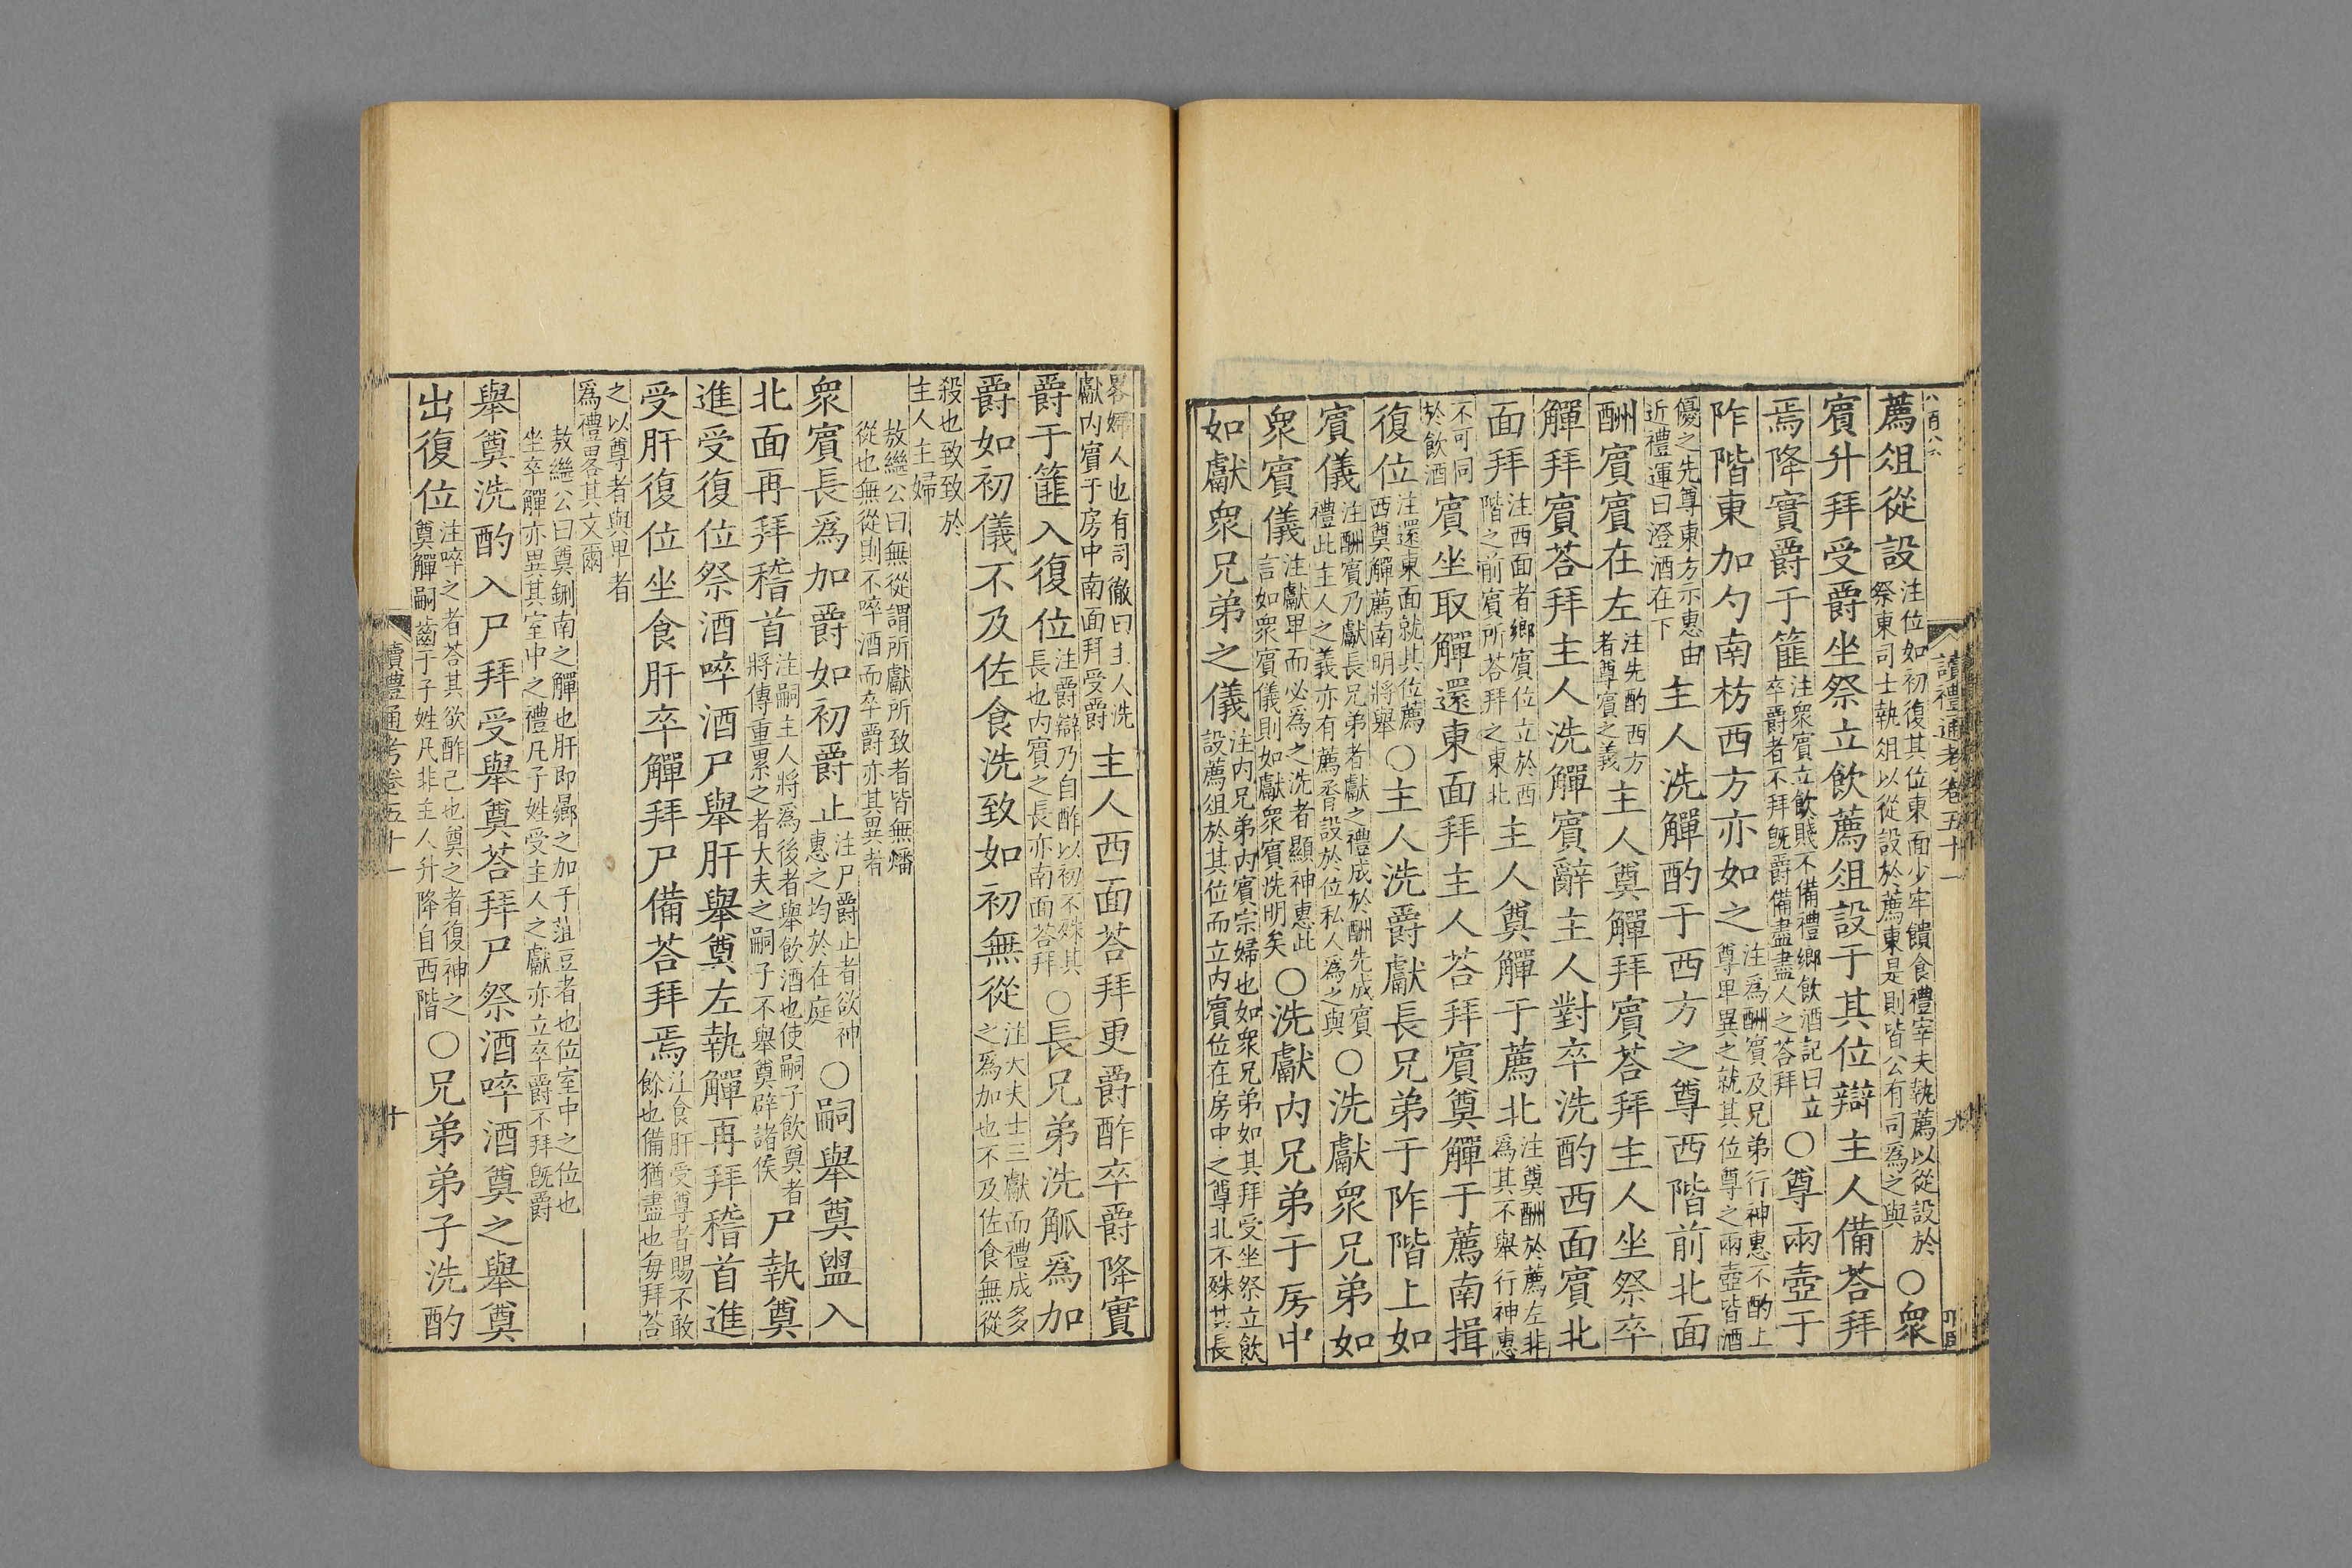 讀禮通考卷五十一
九
薦俎從設注位如初復其位東面少牢饋食禮宰夫執薦以從設於祭東司士執俎以從設於薦東是則皆公有司為之與○衆
賓升拜受爵坐祭立飲薦俎設于其位辯主人備荅拜
焉降實爵于篚注衆賓立飲賤不備禮鄉飲酒記曰立卒爵者不拜旣爵備盡盡人之荅拜○尊兩壺于
阼階東加勺南枋西方亦如之注爲酬賓及兄弟行神惠不酌上尊卑異之就其位尊之兩壺皆酒
優之先尊東方示惠由近禮運曰澄酒在下主人洗觶酌于西方之尊西階前北面
酬賓賓在左注先酌西方者尊賓之義主人奠觶拜賓荅拜主人坐祭卒
觶拜賓荅拜主人洗觶賓辭主人對卒洗酌西面賓北
面拜注西面者鄉賓位立於西階之前賓所荅拜之東北主人奠觶于薦北注奠酬於薦左非爲其不舉行神惠
不可同於飲酒賓坐取觶還東面拜主人荅拜賓奠觶于薦南揖
復位注還東面就其位薦西奠觶薦南明將舉○主人洗爵獻長兄弟于阼階上如
賓儀注酬賓乃獻長兄弟者獻之禮成於酬先成賓禮此主人之義亦有薦脀設於位私人爲之與○洗獻衆兄弟如
衆賓儀注獻卑而必爲之洗者顯神惠此言如衆賓儀則如獻衆賓洗明矣○洗獻內兄弟于房中
如獻衆兄弟之儀注內兄弟內賓宗婦也如衆兄弟如其拜受坐祭立飲設薦俎於其位而立內賓位在房中之尊北不殊其長
畧婦人也有司徹曰主人洗獻內賓于房中南面拜受爵主人西面荅拜更爵酢卒爵降實
爵于篚入復位注爵辯乃自酢以初不殊其長也內賓之長亦南面荅拜○長兄弟洗觚爲加
爵如初儀不及佐食洗致如初無從注大夫士三獻而禮成多之爲加也不及佐食無從
殺也致致於主人主婦
敖繼公曰無從謂所獻所致者皆無燔從也無從則不啐酒而卒爵亦其異者
衆賓長爲加爵如初爵止注尸爵止者欲神惠之均於在庭○嗣舉奠盥入
北面再拜稽首注嗣主人將爲後者舉飲酒也使嗣子飲奠者將傳重累之者大夫之嗣子不舉奠辟諸侯尸執奠
進受復位祭酒啐酒尸舉肝舉奠左執觶再拜稽首進
受肝復位坐食肝卒觶拜尸備荅拜焉注食肝受尊者賜不敢餘也備猶盡也每拜荅
之以尊者與卑者爲禮畧其文爾
敖繼公曰奠鉶南之觶也肝卽曏之加于菹豆者也位室中之位也坐卒觶亦異其室中之禮凡子姓受主人之獻亦立卒爵不拜旣爵
舉奠洗酌入尸拜受舉奠荅拜尸祭酒啐酒奠之舉奠
出復位注啐之者荅其欲酢己也奠之者復神之奠觶嗣齒于子姓凡非主人升降自西階○兄弟弟子洗酌
讀禮通考卷五十一
十